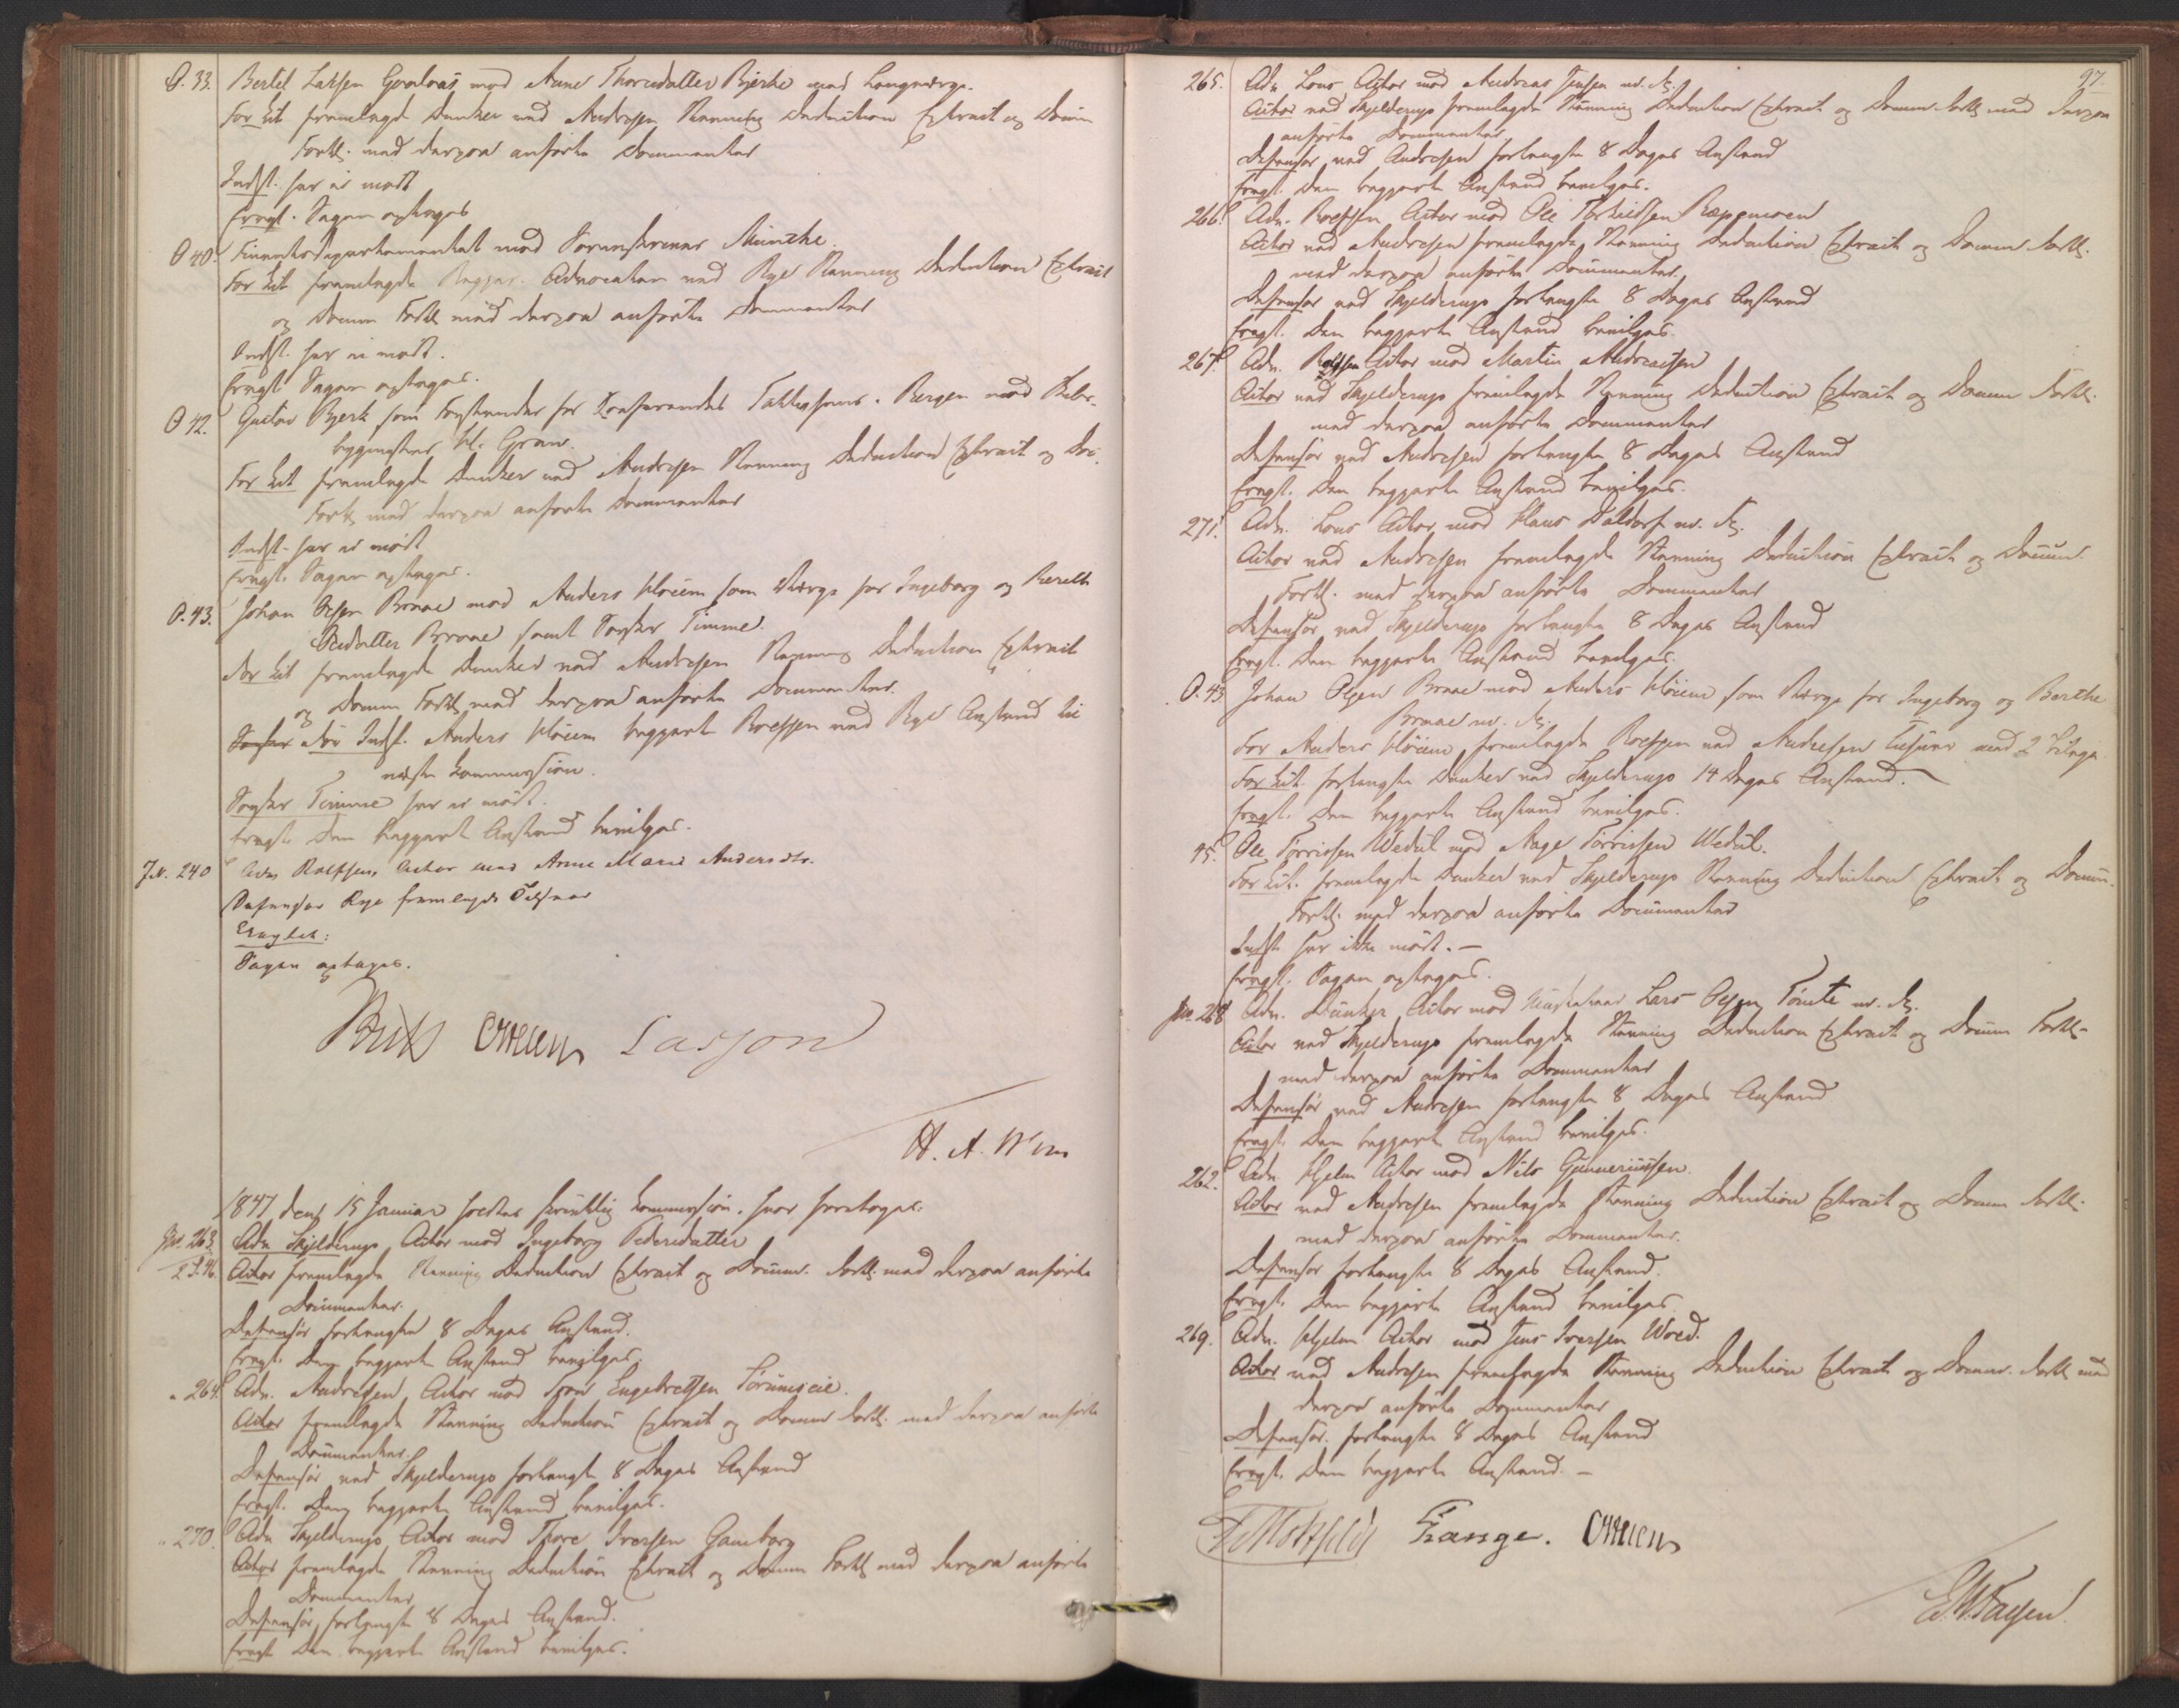 O. 33. Bertel Larsen mod Anne Thorsdatter Bjerke med Laugværge.
For Cit. fremlagde Dunker ved Andresen Stævning Deduction Extract og Docum
Fortt. med derpaa anførte Documenter
Indst. har ei mødt
Eragt. Sagen optages
O 40. Finantsdepartementet mod Sorenskriver Münche.
For Cit fremlagde Regjer. Advocaten ved Rye Stævning Deduction Extract
og Docum Fortt med derpaa anførte Documenter
Indst. har ei mødt.
Eragt. Sagen optages.
O 42. Gustav Bjerk som Forstander for i Bergen mod
bygmester H. Gran.
For Cit fremlagde Dunker ved Andresen Stævning Deduction Extract og Doc.
Fortt med derpaa anførte Documenter
Indst. har ei mødt
Eragt. Sagen optages.
O. 43. Johan Olsen Braae mod Anders Høiem som Værge for Ingeborg og Berethe
Braae samt Timme.
For Cit fremlagde Dunker ved Andresen Stævning Deduction Extract
og Docum Fortt med derpaa anførte Documenter.
For Indst. Anders Høiem begjært Rolfsen ved Rye Anstand til
næste Commission.
Timme har ei mødt.
Eragt. Den begjært Anstand bevilges.
Jn. 240 Adv. Rolfsen, Actor mod Anne Marie Andersdtr.
Defensor Rye fremlagde Tilsvar
Eragtet:
Sagen optages.
Lasson
1847 den 15 Januar holdtes skriftlig Commission, hvor foretoges.
Jno. 263. Adv. Skjelderup Actor mod Ingeborg Pedersdatter
Actor fremlagde Stævning Deduction Extract og Docum. Fortt. med derpaa anførte
Documenter.
Defensor forlangte 8 Dages Anstand.
Eragt. Den begjærte Anstand bevilges.
" 264. Adv. Andresen, Actor mod Engebretsen
Actor fremlagde Stævning Deduction Extract og Docum Fortt. med derpaa anførte
Documenter.
Defensor ved Skjelderup forlangte 8 Dages Anstand
Eragt. Den begjærte Anstand bevilges.
" 270. Adv Skjelderup, Actor mod Thore Iversen Gamborg
Actor fremlagde Stævning Deduction Extract og Docum Fortt med derpaa anførte
Documenter
Defensor forlangte 8 Dages Anstand.
Eragt Den begjærte Anstand bevilges.
97.
265. Adv Lous Actor mod Andreas Jensen m. fl.
Actor ved Skjelderup fremlagde Stævning Deduction Extract og Docum. Fortt med derpaa
anførte Documenter
Defensor ved Andresen forlangte 8 Dages Anstand
Eragt. Den begjærte Anstand bevilges.
266. Adv. Rolfsen Actor mod Ole Torkildsen
Actor ved Andresen fremlagde Stævning Deduction Extract og Docum. Fortt.
med derpaa anførte Documenter.
Defensor ved Skjelderup forlangte 8 Dages Anstand
Eragt. Den begjærte Anstand bevilges.
267. Adv. Rolfsen Actor mod Martin Andreasen
Actor ved Skjelderup fremlagde Stævning Deduction Extract og Docum Fortt.
med derpaa anførte Documenter
Defensor ved Andresen forlangte 8 Dages Anstand
Eragt. Den begjærte Anstand bevilges.
271. Adv. Lous Actor mod Claus Daldorf m. fl.
Actor ved Andresen fremlagde Stævning Deduction Extract og Docum
Fortt. med derpaa anførte Documenter
Defensor ved Skjelderup forlangte 8 Dages Anstand
Eragt. Den begjærte Anstand bevilges.
O. 43. Johan Olsen Braae mod Anders Høiem som Værge for Ingeborg og Berthe
Braae m. fl.
For Anders Høiem fremlagde Rolfsen ved Andresen Tilsvar med 2 Bilage
For Cit. forlangte Dunker ved Skjelderup 14 Dages Anstand.
Eragt. Den begjærte Anstand bevilges.
45. Ole Torrissen Wedul mod Aage Torrissen Wedul.
For Cit. fremlagde Dunker ved Skjelderup Stævning Deduction Extract og Docum.
Fortt. med derpaa anførte Documenter
Indst har ikke mødt. —
Eragt. Sagen optages.
Jno. 268 Adv. Dunker Actor mod Lars Olsen Tømte m. fl.
Actor ved Skjelderup fremlagde Stævning Deduction Extract og Docum Fortt.
med derpaa anførte Documenter
Defensor ved Andresen forlangte 8 Dages Anstand
Eragt. Den begjærte Anstand bevilges.
262. Adv. Hjelm Actor mod Nils Gunneriussen.
Actor ved Andresen fremlagde Stævning Deduction Extract og Docum Fortt.
med derpaa anførte Documenter.
Defensor forlangte 8 Dages Anstand.
Eragt. Den begjærte Anstand bevilges
269. Adv. Hjelm Actor mod Jens Iversen Woed.
Actor ved Andresen fremlagde Stævning Deduction Extract og Docum. Fortt med
derpaa anførte Documenter
Defensor. forlangte 8 Dages Anstand
Eragt. Den begjærte Anstand. —
Motzfeldt Prange.